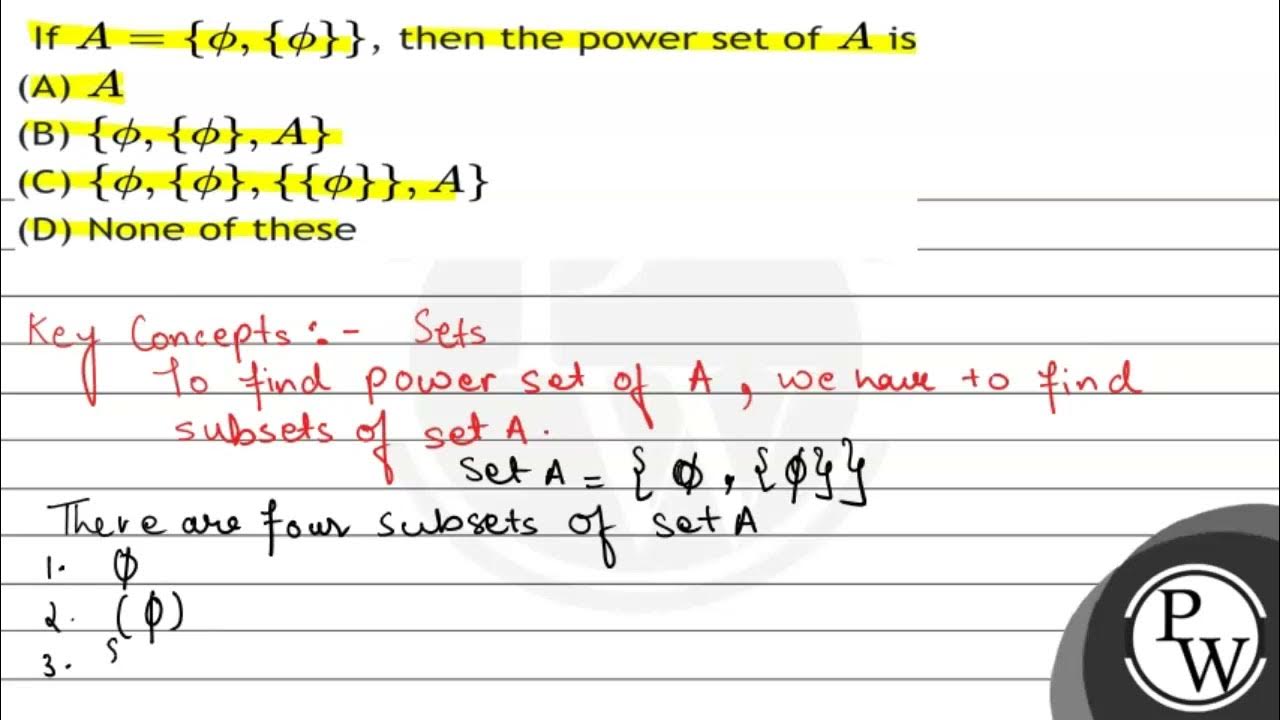 If A = {ϕ, {ϕ}}, then the power set of A is
(A) A
(B) {ϕ, {ϕ}, A}
(C) {ϕ, {ϕ}, {{ϕ}}, A}
(D) None of these
Key Concepts :- Sets
To find power set of A, we have to find
subsets of set A.
Set A = { ϕ, {ϕ}}
There are four subsets of set A
1. ϕ
2. (ϕ)
3.
PW